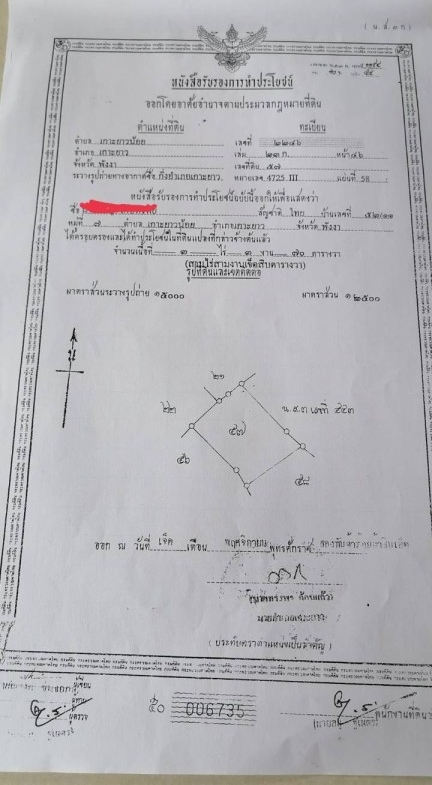 ( น.ส.๓ ก )
หนังสือรับรองการทำประโยชน์
ออกโดยอาศัยอำนาจตามประมวลกฎหมายที่ดิน
ตำแหน่งที่ดิน
ทะเบียน
ตำบล เกาะยาวน้อย เลขที่ ๒๒๔๖
อำเภอ เกาะยาว เล่ม ๒๓ ก. หน้า ๔๖
จังหวัด พังงา เลขที่ดิน ๕๗
ระวางรูปถ่ายทางอากาศชื่อ กิ่งอำเภอเกาะยาว หมายเลข 4725 III แผ่นที่ 58
หนังสือรับรองการทำประโยชน์ฉบับนี้ออกให้เพื่อแสดงว่า
ชื่อ สัญชาติ ไทย บ้านเลขที่
หมู่ที่ ๗ ตำบล เกาะยาวน้อย อำเภอ เกาะยาว จังหวัด พังงา
ได้ครอบครองและได้ทำประโยชน์ในที่ดินแปลงที่กล่าวข้างต้นแล้ว
จำนวนเนื้อที่ ๓ ไร่ ๓ งาน ๗๐ ตารางวา
(สามไร่สามงานเจ็ดสิบตารางวา)
รูปที่ดินและเขตติดต่อ
มาตราส่วนระวางรูปถ่าย ๑:๕๐๐๐ มาตราส่วน ๑:๒๕๐๐
น
๒๑
๒๒
น.ส.๓ เลขที่ ๔๔๓
๕๗
๕๖
๕๘
ออก ณ วันที่ เจ็ด เดือน พฤศจิกายน พุทธศักราช
( ประทับตราตำแหน่งเป็นสำคัญ )
ผู้เขียน
ผู้ตรวจ
๕๐ 006735